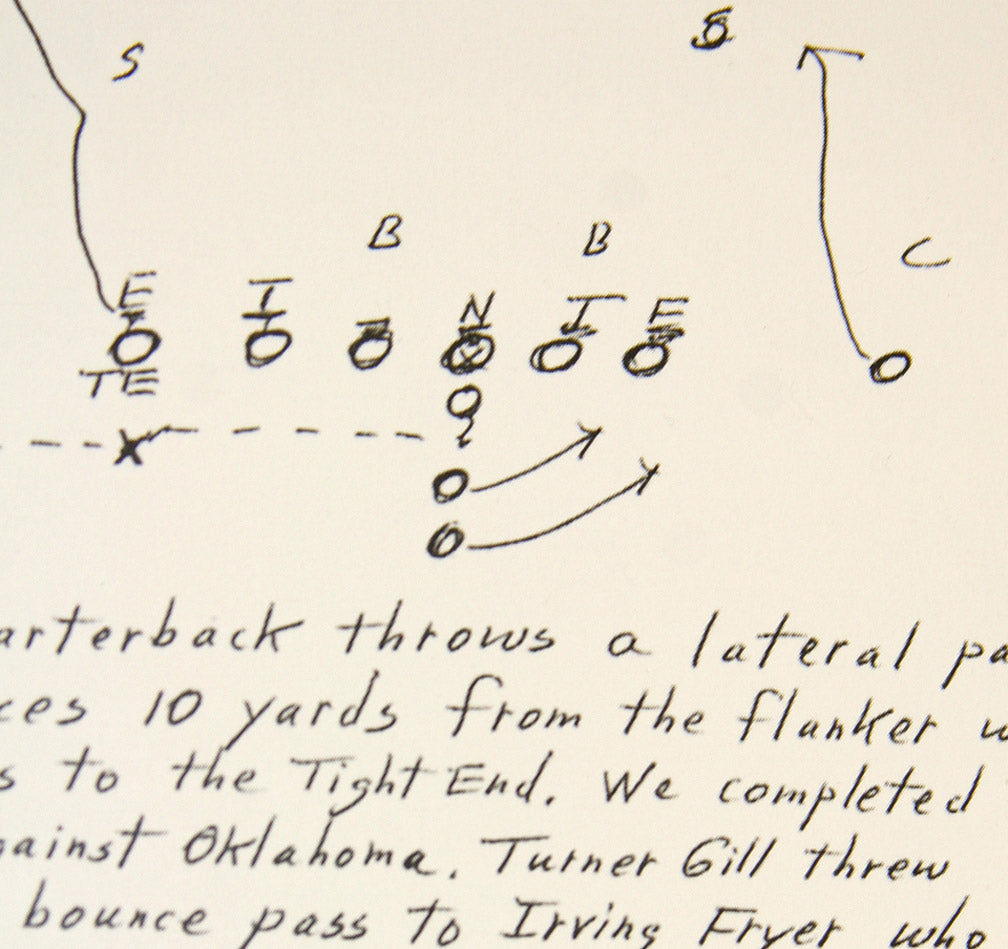 S S
B B C
E T N T E
TE
arterback throws a lateral pa
ces 10 yards from the flanker w
s to the Tight End. We completed
gainst Oklahoma. Turner Gill threw
bounce pass to Irving Fryer who